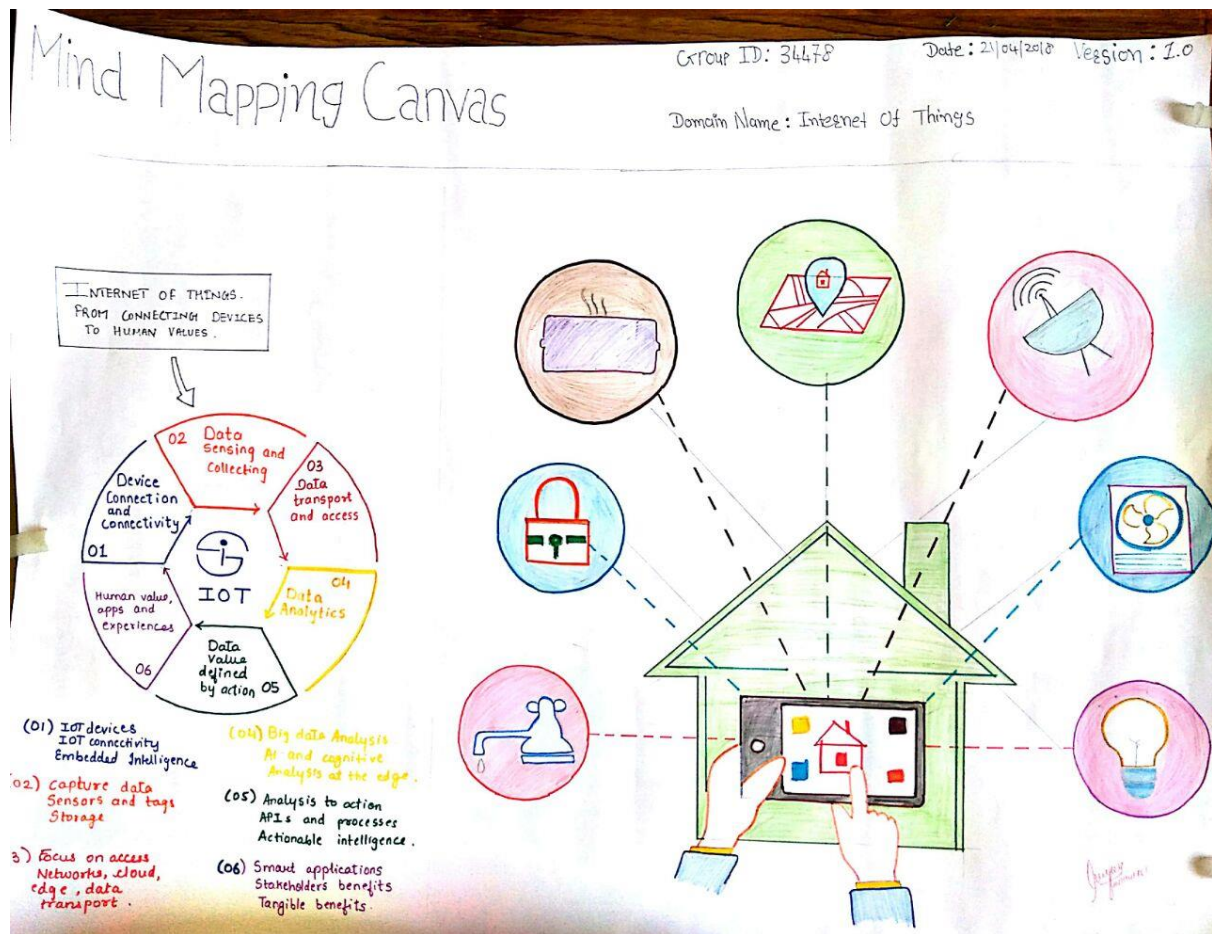 Mind Mapping Canvas
Group ID: 34478
Date: 21/04/2018
Version: 1.0
Domain Name: Internet Of Things
INTERNET OF THINGS.
FROM CONNECTING DEVICES
TO HUMAN VALUES.
02 Data
Sensing and
Collecting
03
Data
transport
and access
Device
Connection
and
Connectivity
01
IOT
04
Data
Analytics
Human value,
apps and
experiences
06
Data
Value
defined
by action 05
(01) IOT devices
IOT connectivity
Embedded Intelligence
02) Capture data
Sensors and tags
Storage
3) Focus on access
Networks, cloud,
edge, data
transport.
(04) Big data Analysis
AI and cognitive
Analysis at the edge.
(05) Analysis to action
APIs and processes
Actionable intelligence.
(06) Smart applications
Stakeholders benefits
Tangible benefits.